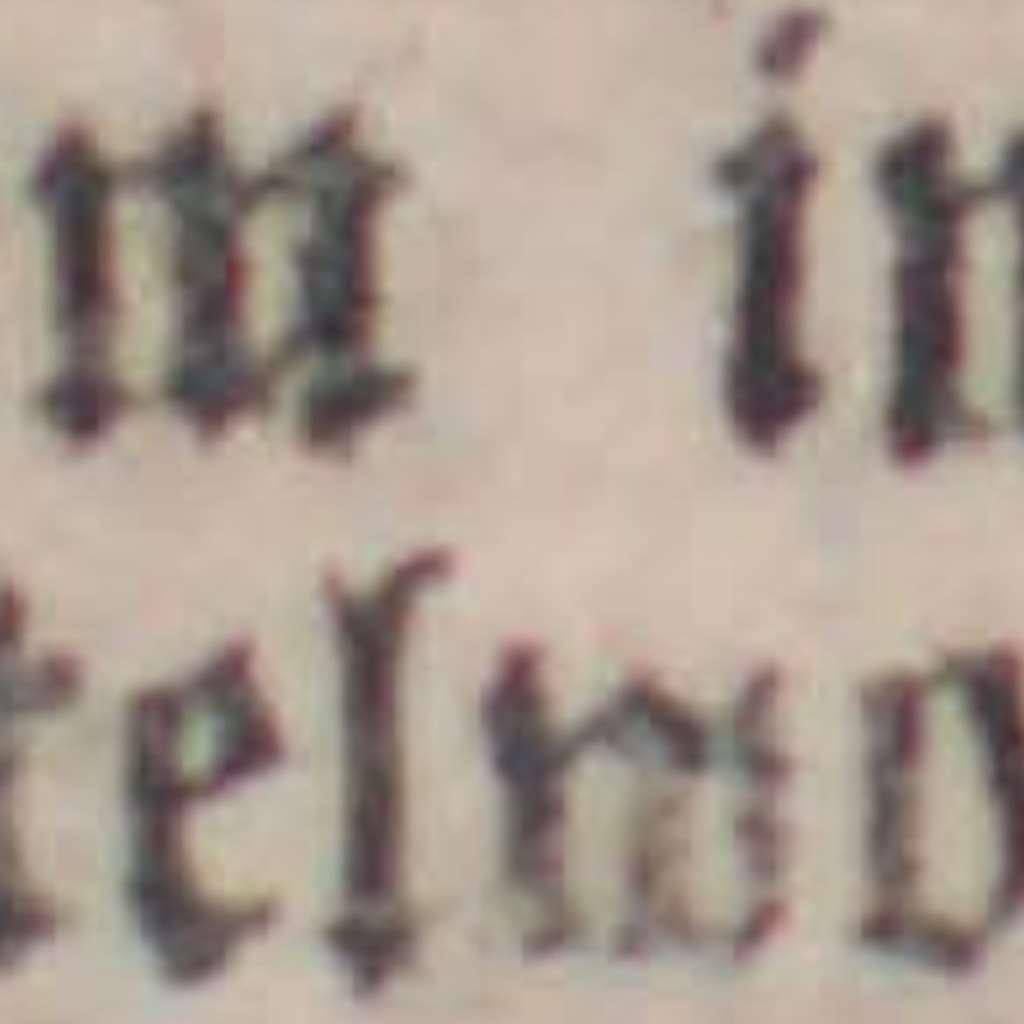 m in
telmo